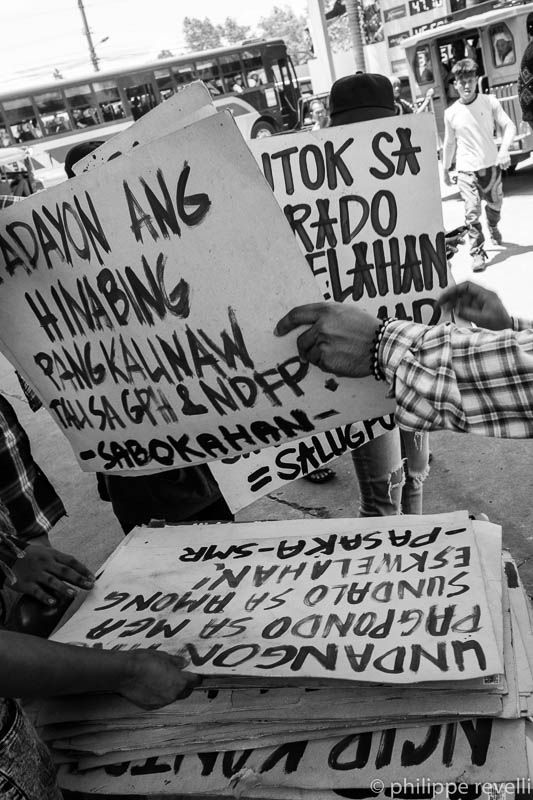 ADAYON ANG
HINABING
PANGKALINAW
TALI SA GPH & NDFP.
-SABOKAHAN-
NTOK SA
RADO
ELAHAN
= SALUGPO
UNDANGON
PAGPONDO SA MGA
SUNDALO SA AMONG
ESKWELAHAN!"
-PASAKA-SMR-
NCIP
© philippe revelli